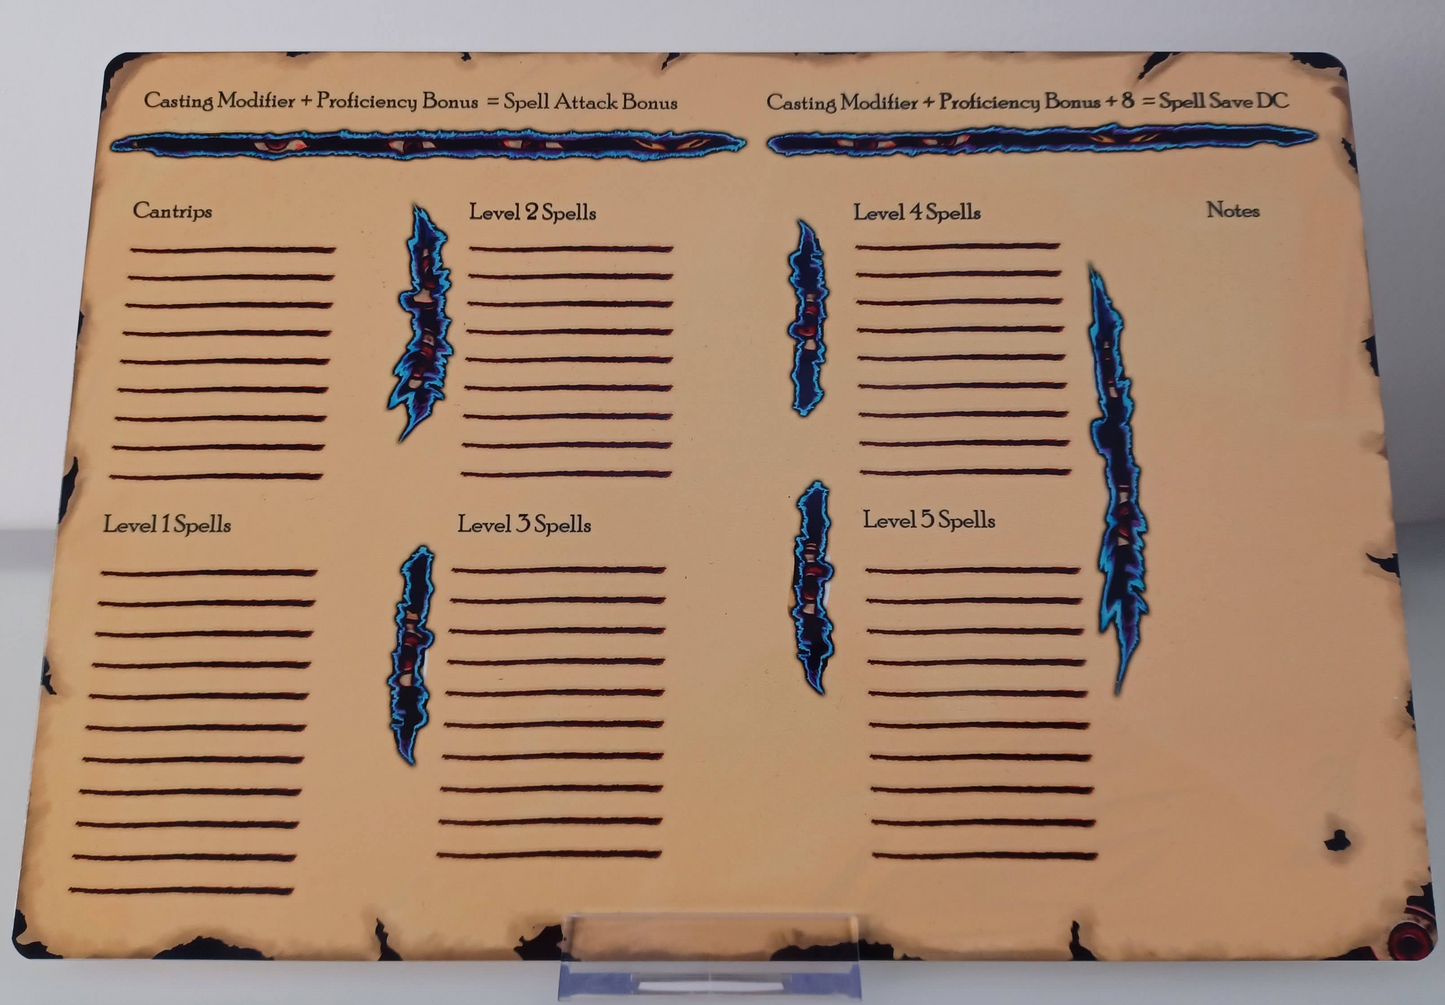 Casting Modifier + Proficiency Bonus = Spell Attack Bonus
Casting Modifier + Proficiency Bonus + 8 = Spell Save DC
Cantrips
Level 2 Spells
Level 4 Spells
Notes
Level 1 Spells
Level 3 Spells
Level 5 Spells